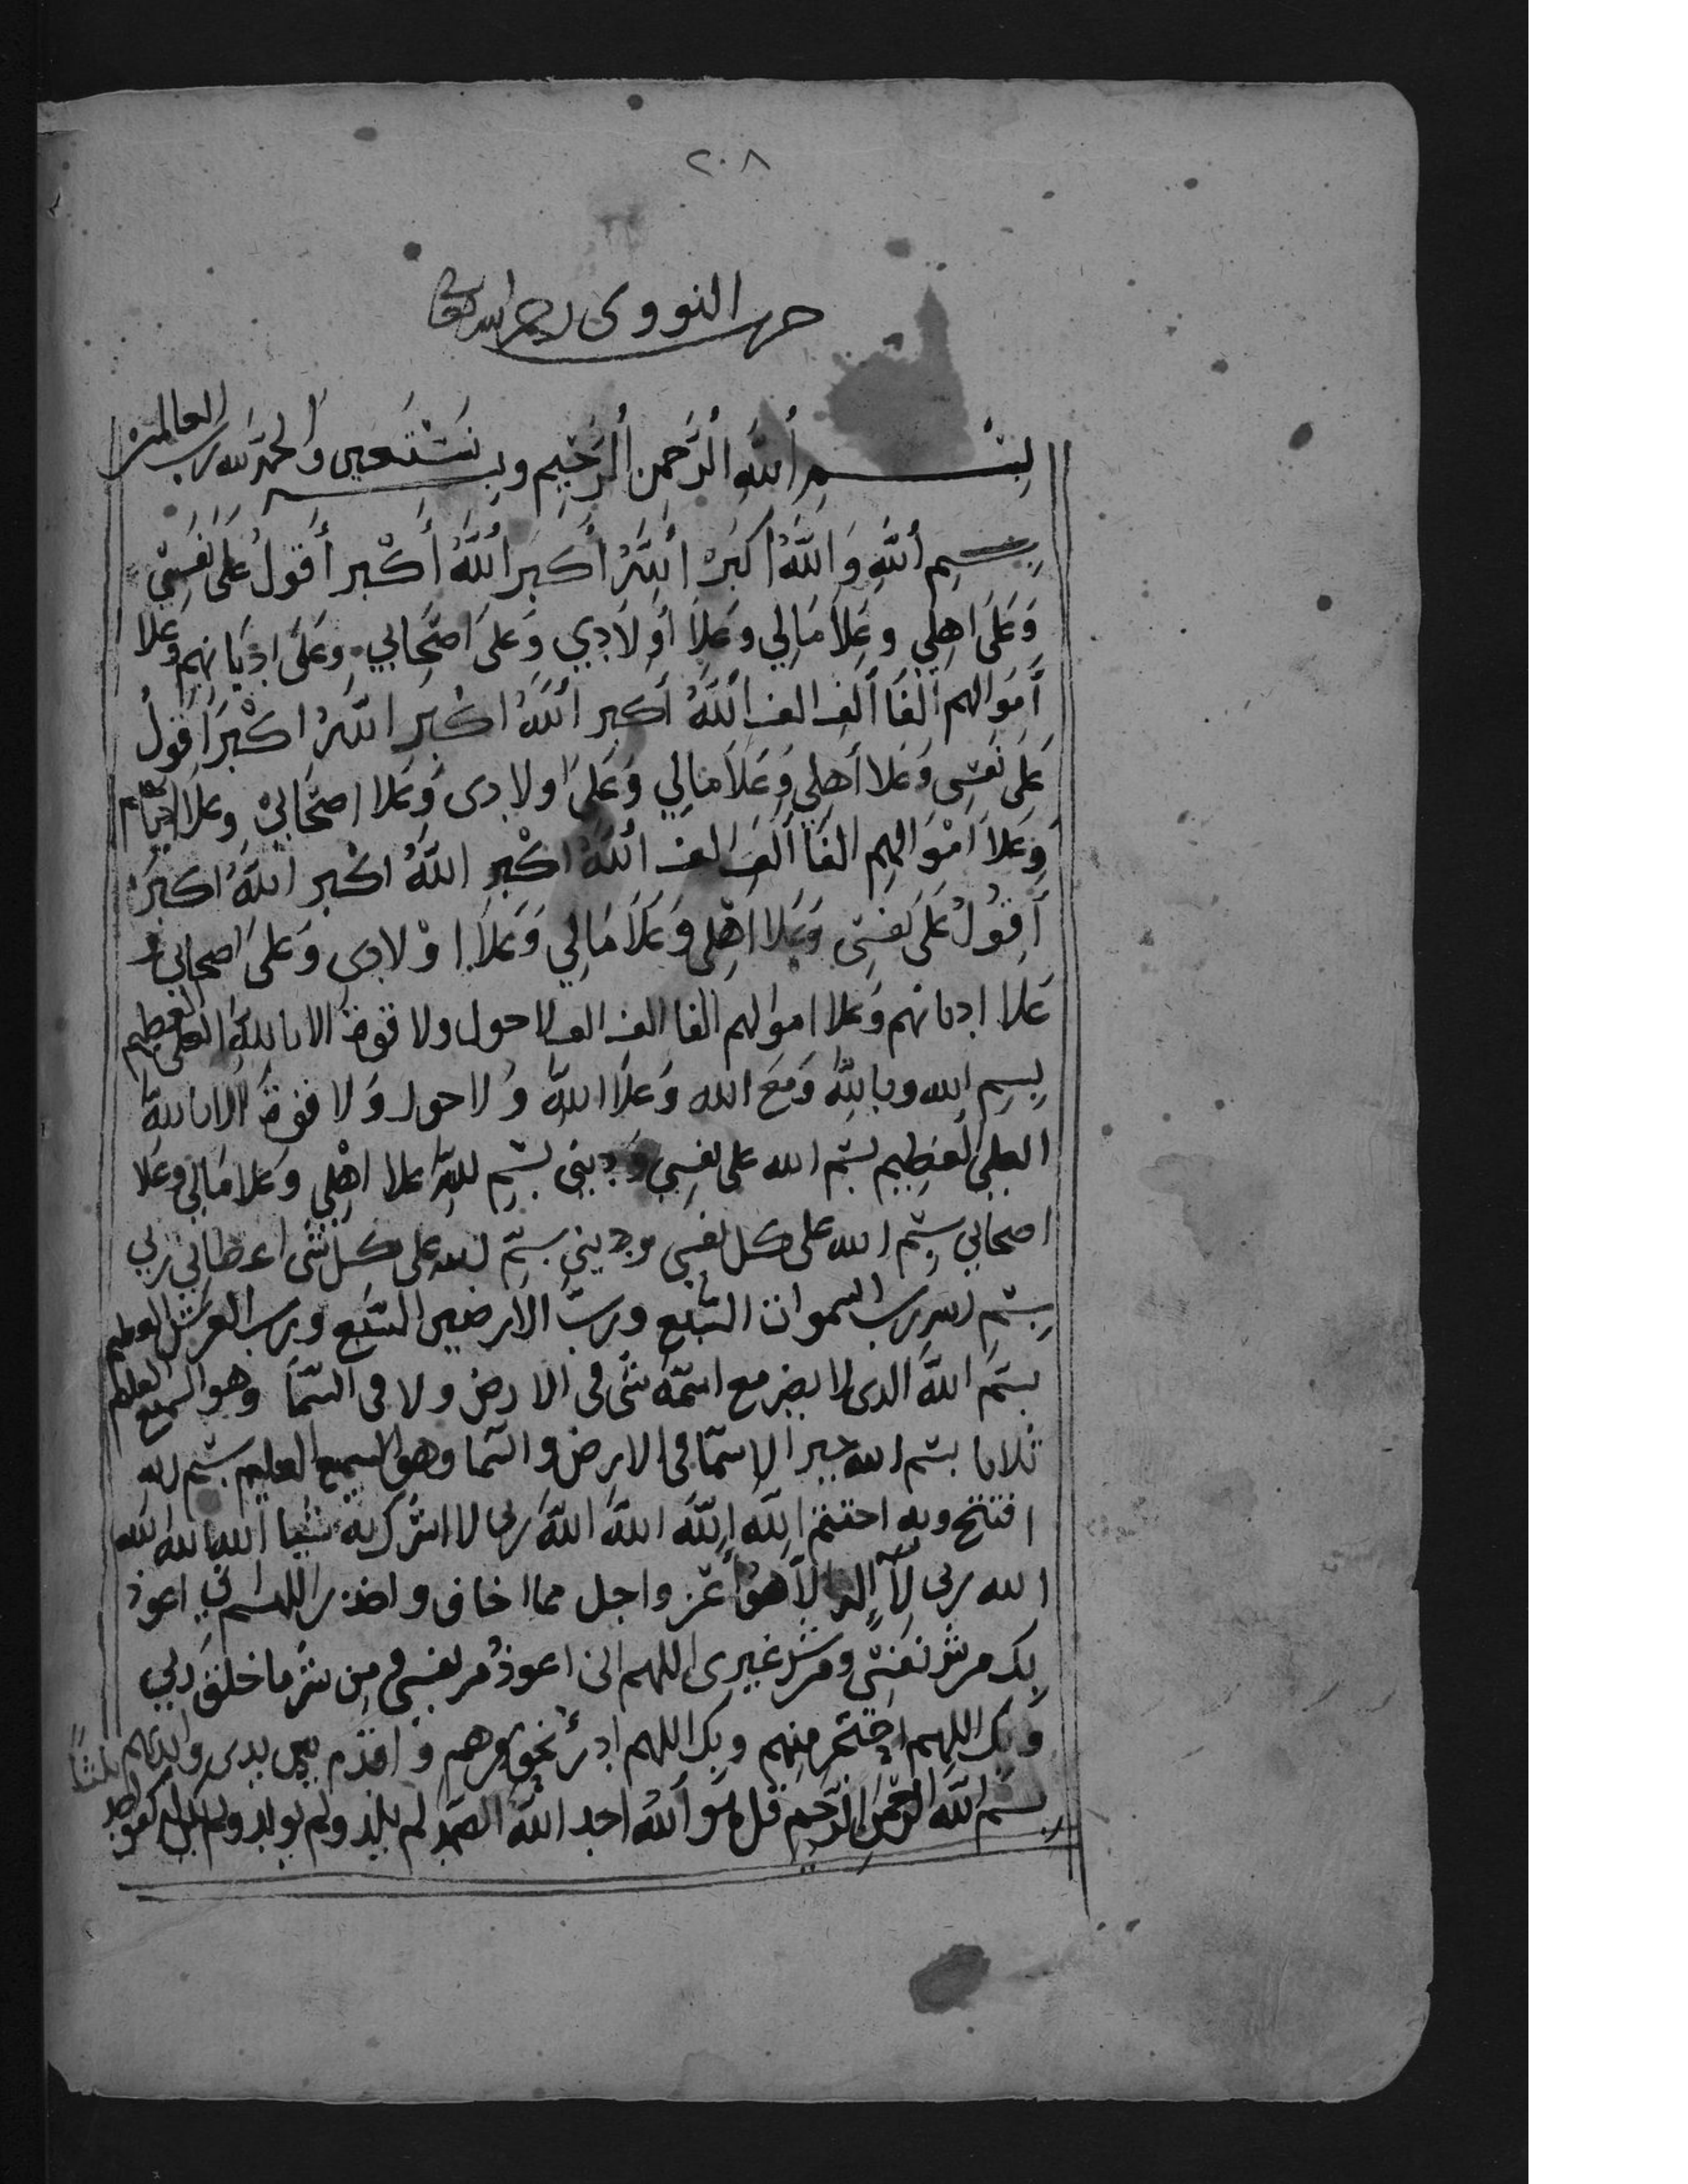 ٢٠٨
حزب النووى رحمه الله تعالى
بِسْمِ اللهِ الرَّحمن الرَّحيِم وبه نَسْتَعين وَالحمد لله رب العالمين
بِسْمِ اللهِ وَاللهُ اكبَرُ اللهُ أكبَر اللهُ أَكْبر أَقولُ عَلَى نَفسِيْ
وَعَلَى اهِلي وعَلاَ مَالِي وعَلاَ أَوْلاَدِي وَعَلىَ اصْحَابي وعَلَى ادْيَانهِم وعَلا
أَموَالهم ألفَا ألفِ الف اللهُ اَكبر اللهُ اكْبَر اللهُ اكْبَر اَقولُ
عَلَى نَفسِى وَعَلا أهلِي وَعَلاَ مَالِي وَعَلىَ اولادى وَعَلا اصْحَابيْ وعَلاَ اديانهم
وَعَلاَ امْوَالهِم الفَا ألفَ الف اللهُ اكْبر اللهُ اكْبر اللهُ اكبَرْ
أَقُولُ عَلَى نَفسِى وَعَلا اهْلِى وَعَلاَ مَالِي وَعَلاَ اوْلادِى وَعَلىَ اصحابي و
عَلا ادىانهم وَعَلا اموالهم الفا الف الف لا حول ولا قوة الا بالله العلى العظيم
بِسِم الله وباللهِ وَمَعَ الله وَعَلاَ اللهِ وَلا حول وَلا قوة الا بالله
العلِى العَظِيم بسْم الله على نفسِي وَدِينى بسْمِ اللهِ علا اهْلِي وعَلا مَالِي وعَلا
اصحابي بسْم الله على كل نفسِى ودِيني بسْم الله على كل شئ اعطانِي ربي
بِسْمِ الله رب السموات السّبْع وربّ الارضين السَبْع ورب العرش العظيم
بسْم اللهِ الذى لا يضر مع اسْمه شئ في الارض ولا في السّمَا وهو السميع العليم
ثلاثا بسْم الله خير الاسْمَا في الارض والسَما وهو السميع العليم بسْم الله
افتتح وبه اختتم اللهُ اللهُ اللهُ اللهُ ربى لا اشرك به شيْا الله الله الله
الله ربى لآ إله الاَّ هوَ أعَز واجل مما اخاف واحذر اللهم انى اعوذ
بِك من شر نفسِى ومن شر غيرى اللهم انى اعوذُ من نفسِى ومن شر ما خلق ربي
وَبِك اللهم احْتَرز منهم وبِك اللهم ادرأ في نحورهم وَاقدّم بين يدى وايديهم ثلاثًا
بِسْم الله الرحْمنِ الرّحِيم قل هوَ اللهُ احد اللهُ الصَّمد لم يلِد ولم يولد ولم يكن له كفوا احد